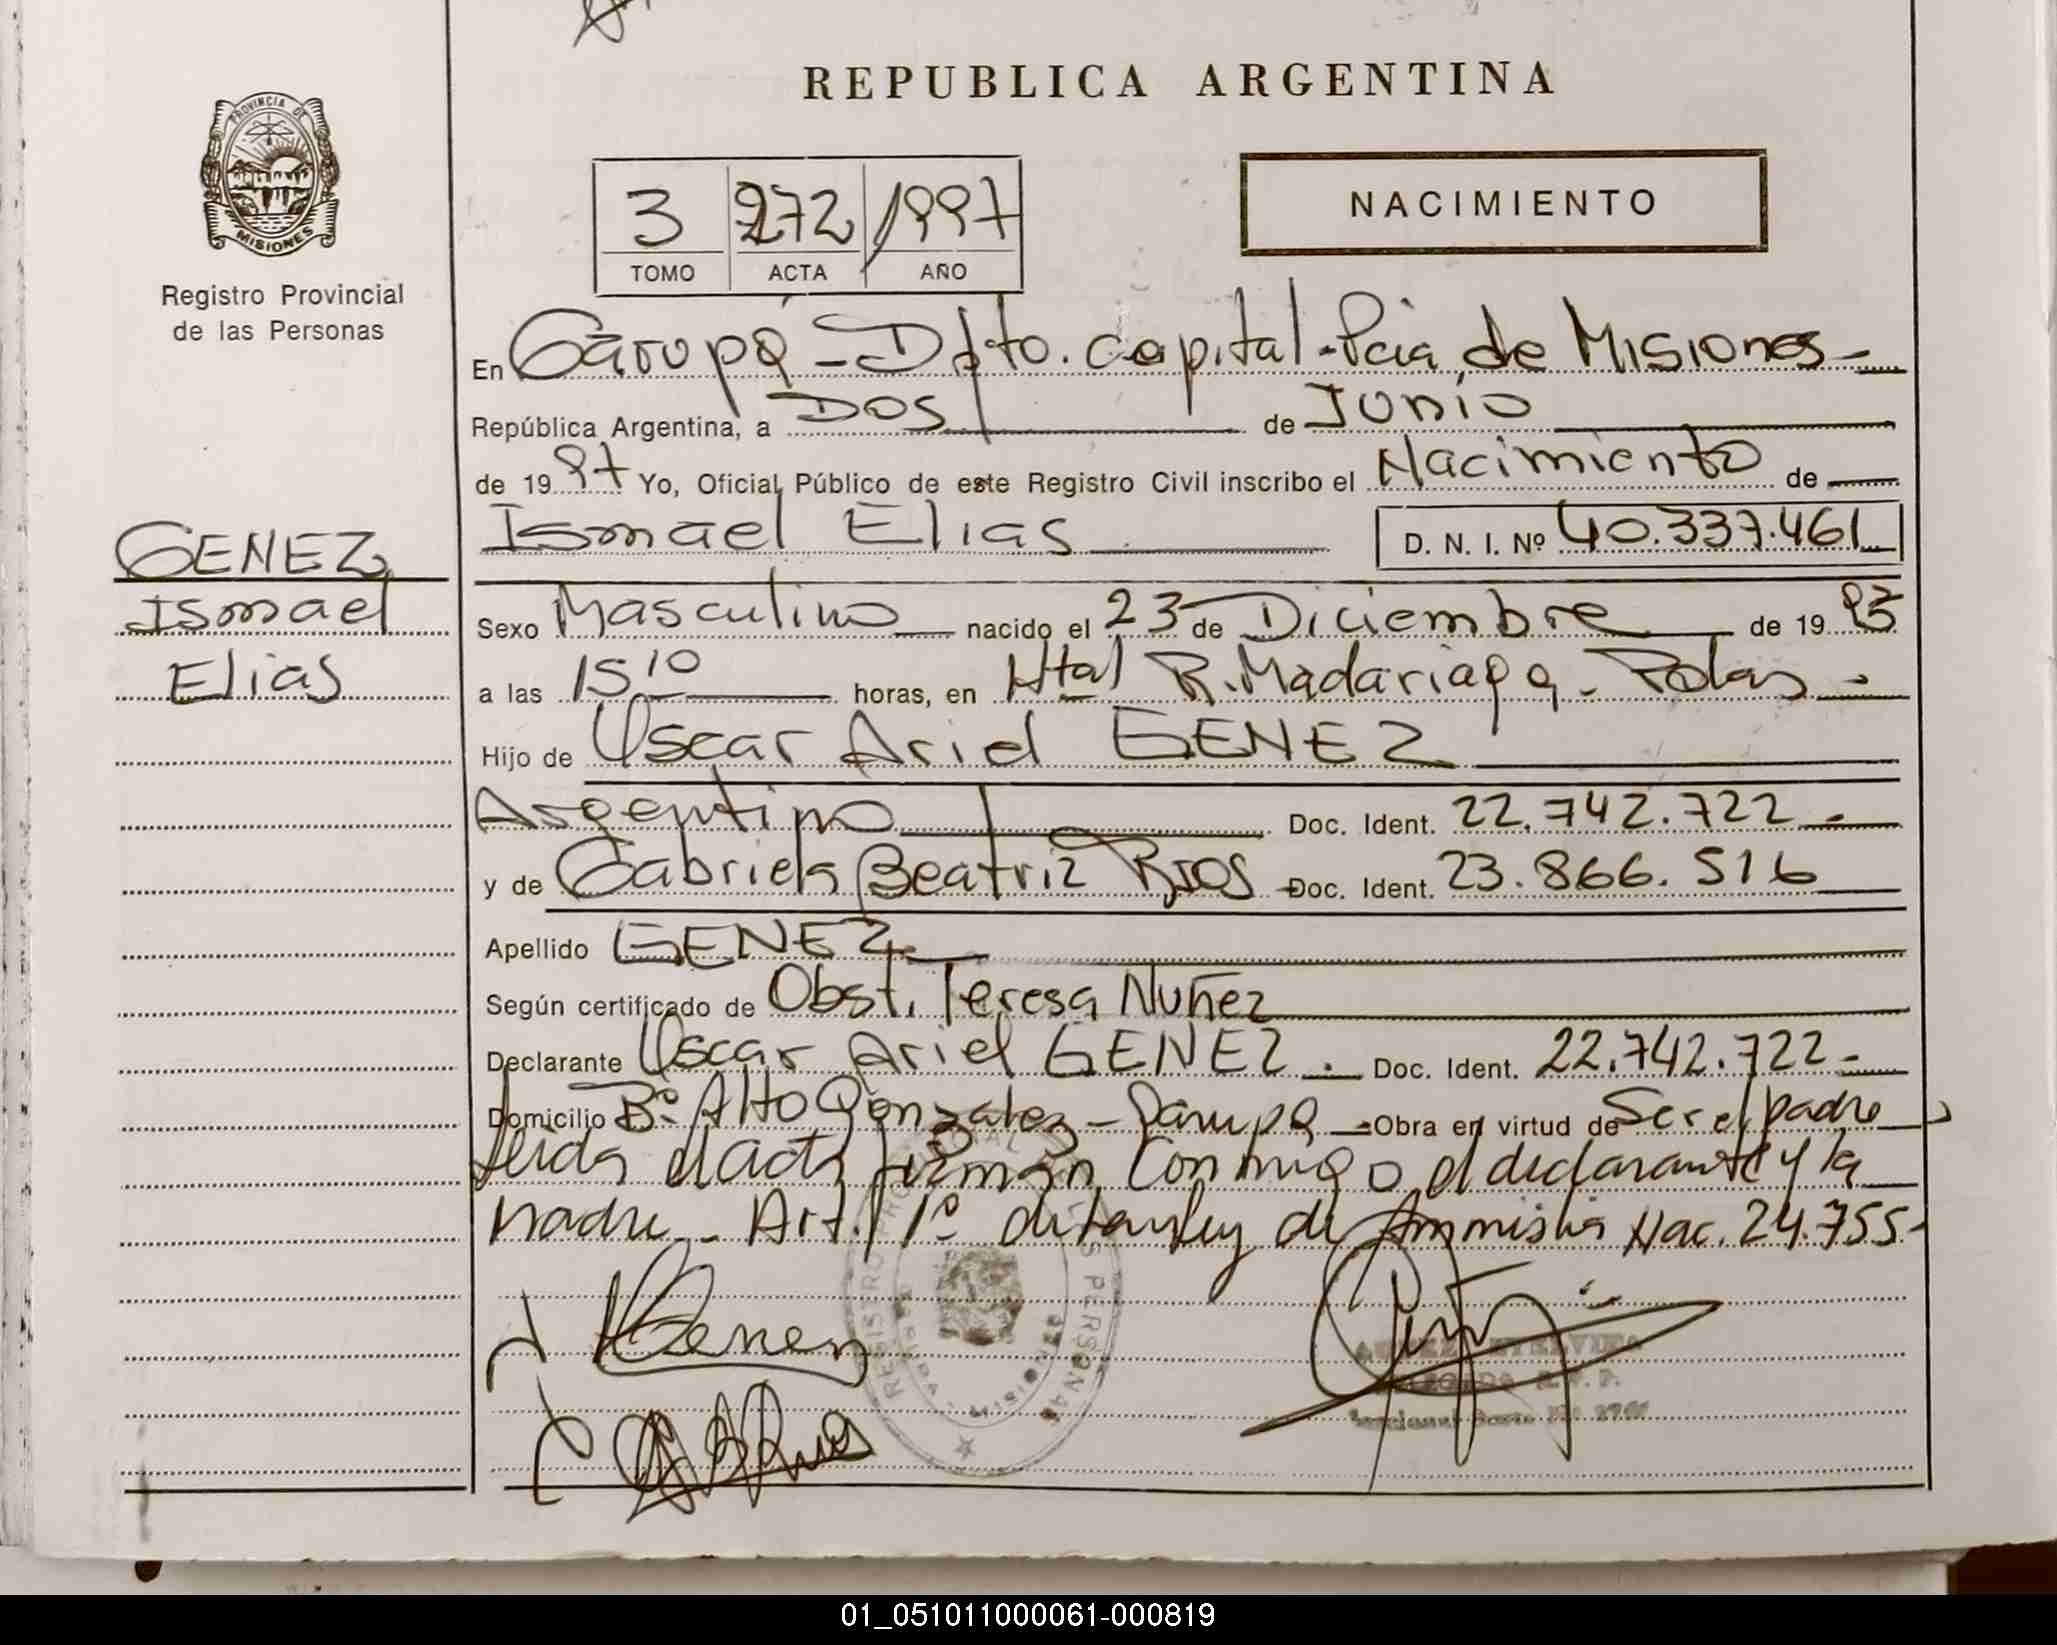 REPUBLICA ARGENTINA
PROVINCIA DE
MISIONES
Registro Provincial
de las Personas
3 272 1997
TOMO ACTA AÑO
NACIMIENTO
En Garupá - Dpto. Capital - Pcia de Misiones -
República Argentina, a DOS de Junio
de 1997 Yo, Oficial Público de este Registro Civil inscribo el Nacimiento de
Ismael Elias D. N. I. Nº 40.337.461
GENEZ
Ismael
Elias
Sexo Masculino nacido el 23 de Diciembre de 19
a las 15 10 horas, en Htal R. Madariaga - Pdas -
Hijo de Oscar Ariel GENEZ
Argentino Doc. Ident. 22.742.722 -
y de Gabriela Beatriz Rios Doc. Ident. 23.866.516
Apellido GENEZ
Según certificado de Obst. Teresa Nuñez
Declarante Oscar Ariel GENEZ . Doc. Ident. 22.742.722 -
Domicilio Bº Alto Gonzalez - Garupa - Obra en virtud de Ser el padre
Leida el acta firman Conmigo el declarante y la
madre - Art. 1º de la ley de Ammistia Nac. 24.755 -
Genez
01_051011000061-000819